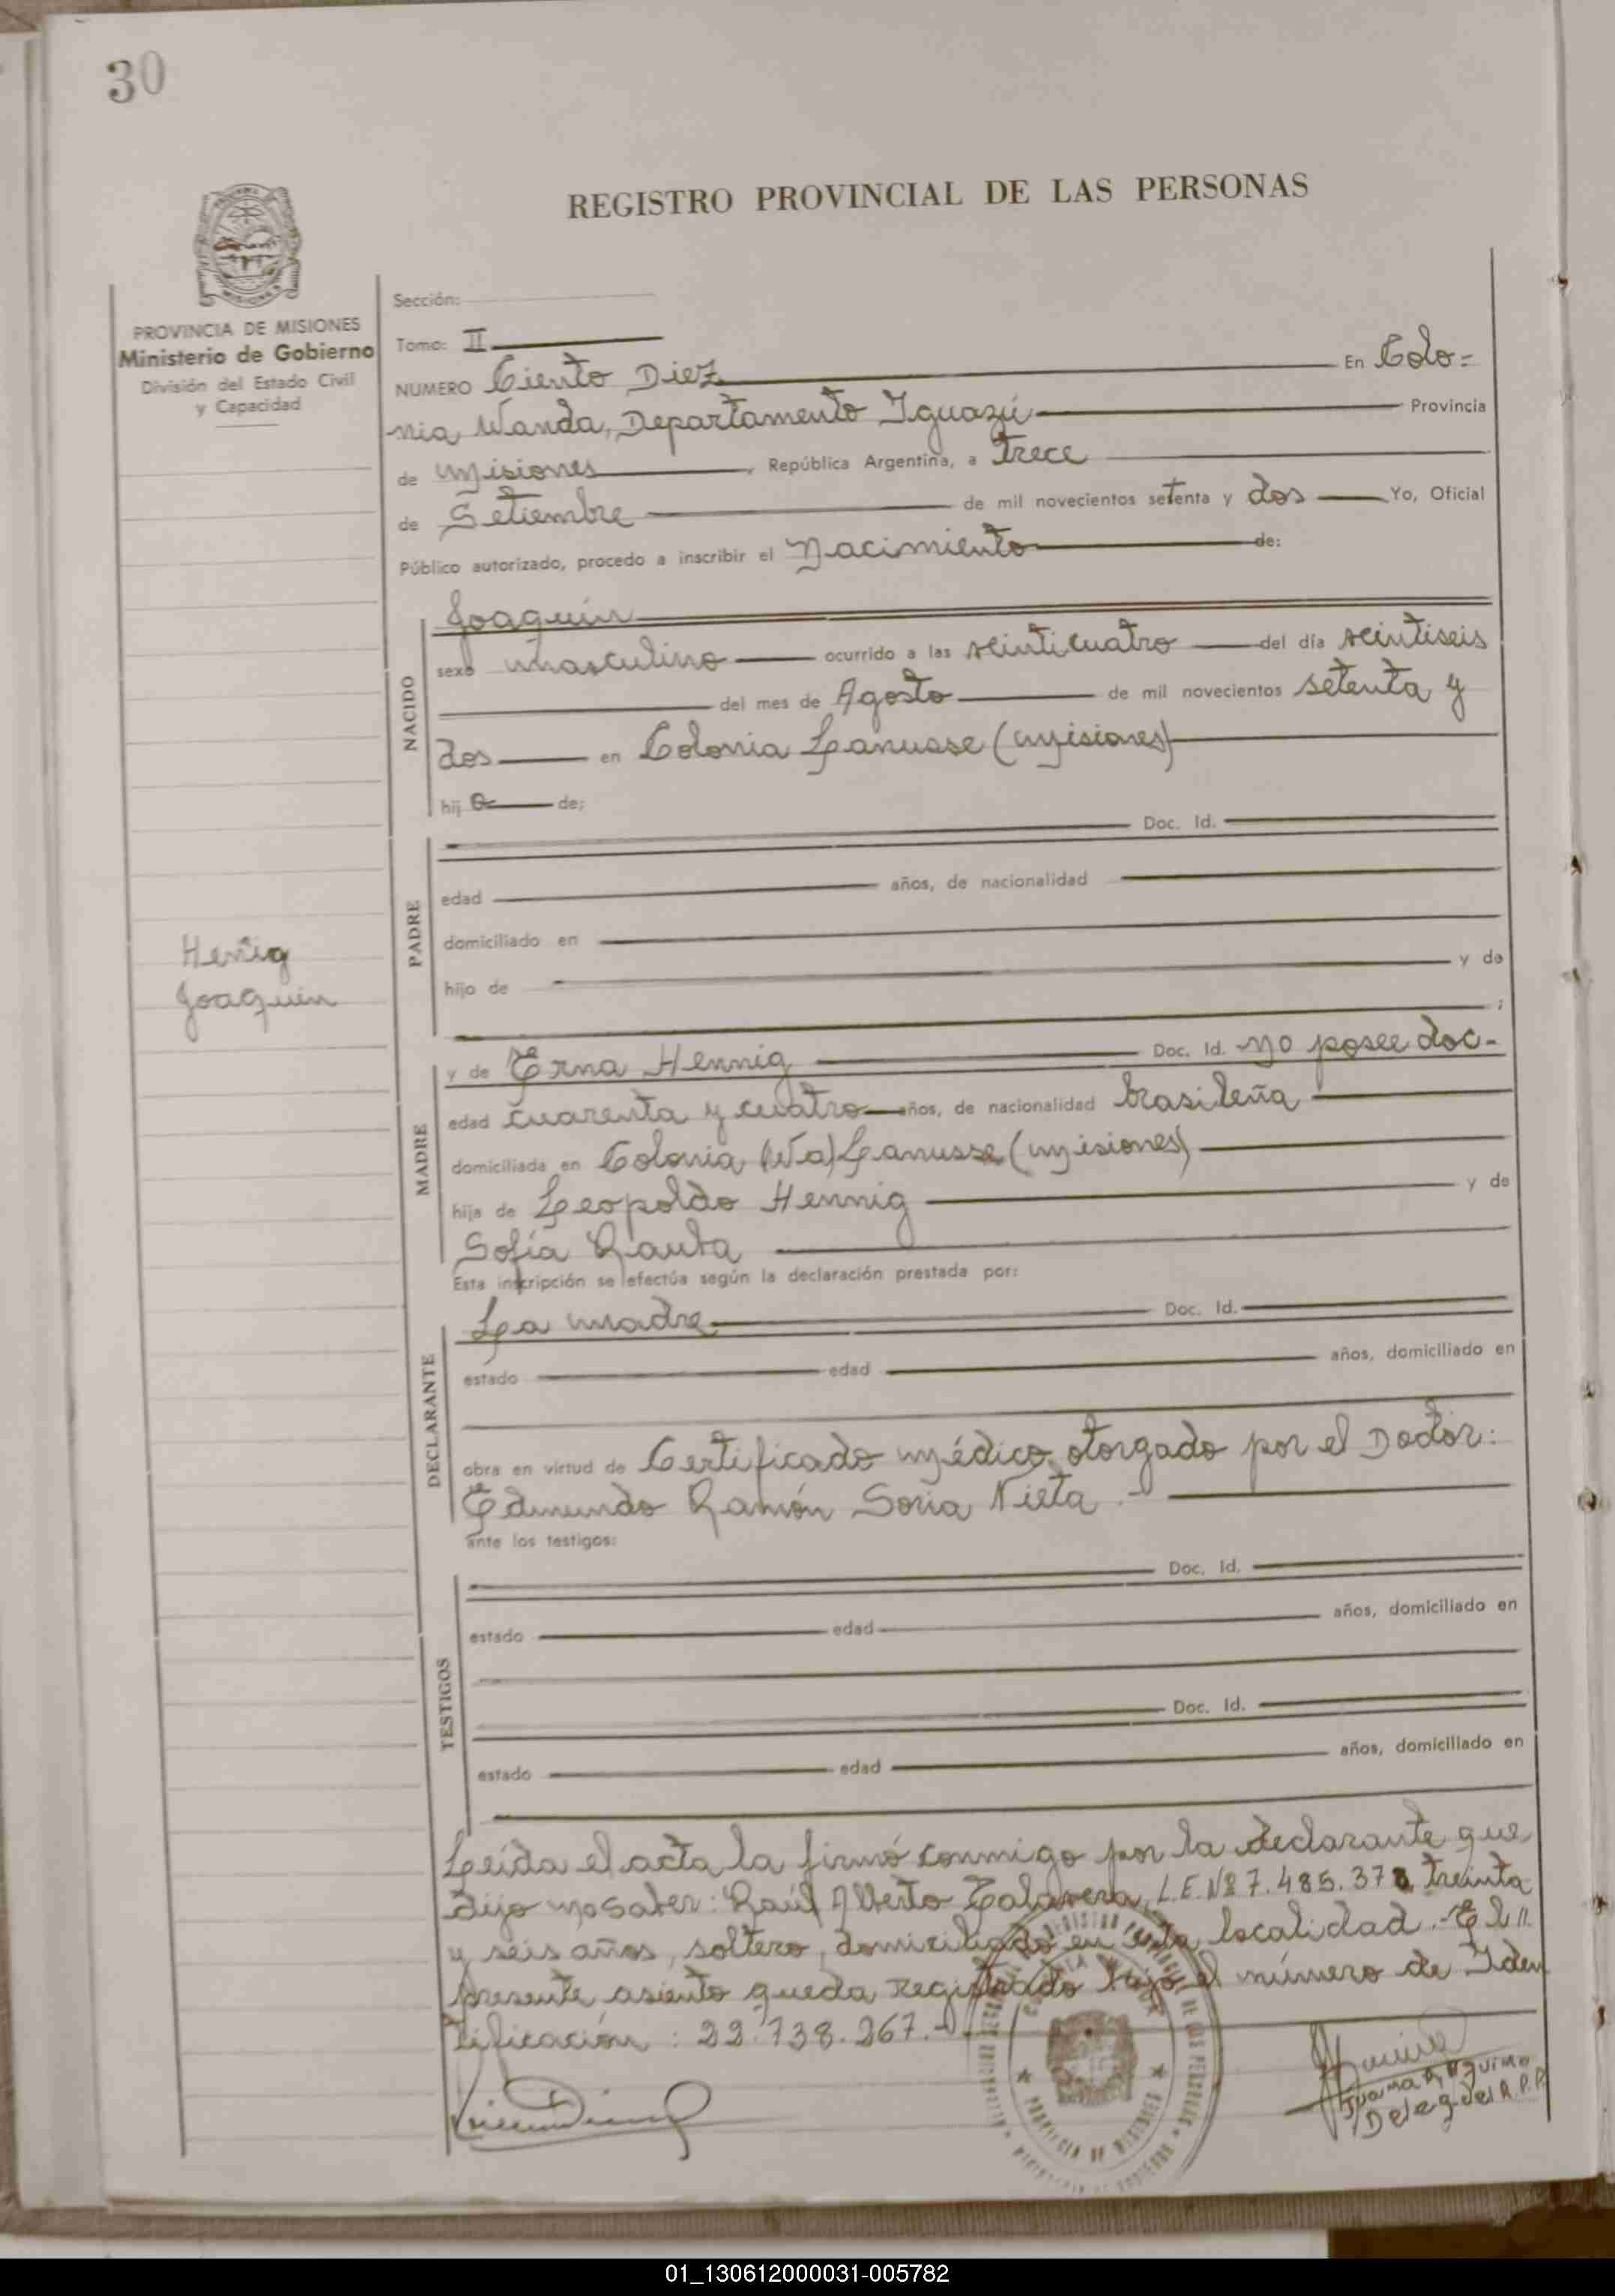 30
REGISTRO PROVINCIAL DE LAS PERSONAS
PROVINCIA DE MISIONES
Ministerio de Gobierno
División del Estado Civil
y Capacidad
Sección:
Tomo: II
NUMERO Ciento Diez En Colo=
nia Wanda, Departamento Iguazú Provincia
de Misiones, República Argentina, a Trece
de Setiembre de mil novecientos setenta y dos Yo, Oficial
Público autorizado, procedo a inscribir el Nacimiento de:
NACIDO
Joaquín
sexo masculino ocurrido a las veinticuatro del día veintiseis
del mes de Agosto de mil novecientos setenta y
dos en Colonia Lanusse (Misiones)
hij o de;
PADRE
Doc. Id.
edad años, de nacionalidad
domiciliado en
hijo de y de
;
Hennig
Joaquin
MADRE
y de Erna Hennig Doc. Id. No posee doc-
edad cuarenta y cuatro años, de nacionalidad brasileña
domiciliada en Colonia (Wa) Lanusse (Misiones)
hija de Leopoldo Hennig y de
Sofía Rauta
Esta inscripción se efectúa según la declaración prestada por:
DECLARANTE
La madre Doc. Id.
estado edad años, domiciliado en
obra en virtud de Certificado médico otorgado por el Doctor:
Edmundo Ramón Soria Nieta.-
ante los testigos:
TESTIGOS
Doc. Id.
estado edad años, domiciliado en
Doc. Id.
estado edad años, domiciliado en
Leída el acta la firmó conmigo por la declarante que
dijo no saber: Raúl Alberto Talavera, L.E. Nº 7.485.378 treinta
y seis años, soltero, domiciliado en esta localidad.- El //
presente asiento queda registrado bajo el número de Iden
tificación: 22.738.267.-
PROVINCIA DE MISIONES
Deleg. del R.P.P.
01_130612000031-005782